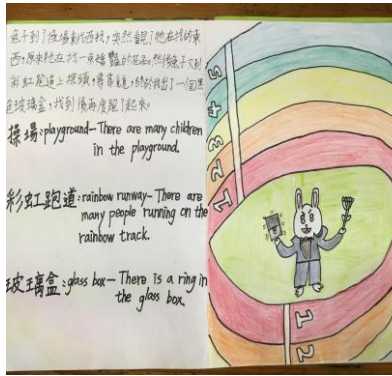 兔子到了操場東找西找,突然看見了牠在找的東
西,原來牠在找一束捧豔的花朵。然後兔子又到
彩虹跑道上摸頭,尋尋覓覓,終於找出了一個黑
色玻璃盒,找到後再度跑了起來。
操場:playground--There are many children
in the playground.
彩虹跑道:rainbow runway--There are
many people running on the
rainbow track.
玻璃盒:glass box--There is a ring in
the glass box.
5
4
3
2
1
1
2